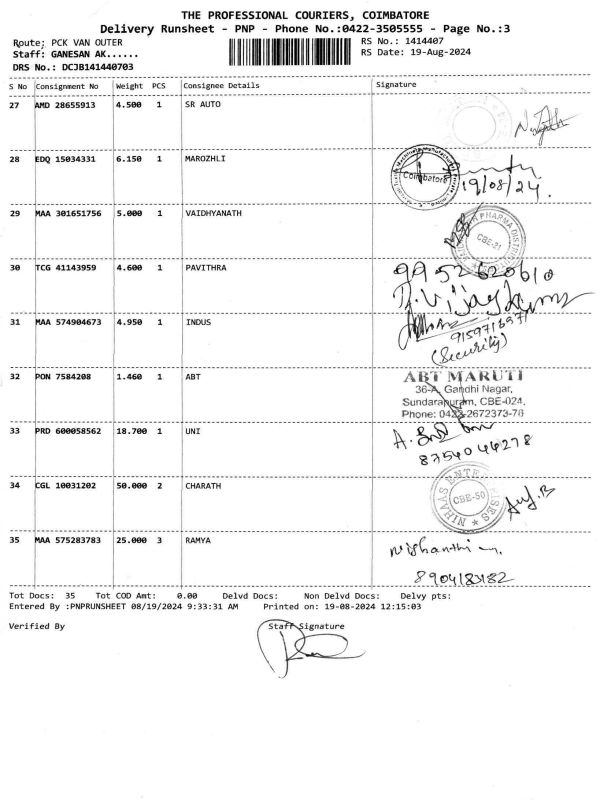 THE PROFESSIONAL COURIERS, COIMBATORE
Delivery Runsheet - PNP - Phone No.:0422-3505555 - Page No.:3
Route; PCK VAN OUTER RS No.: 1414407
Staff: GANESAN AK...... RS Date: 19-Aug-2024
DRS No.: DCJB141440703
S No Consignment No Weight PCS Consignee Details Signature
27 AMD 28655913 4.500 1 SR AUTO
28 EDQ 15034331 6.150 1 MAROZHLI
Coimbatore
19/08/24.
29 MAA 301651756 5.000 1 VAIDHYANATH
PHARMA
CBE-21
30 TCG 41143959 4.600 1 PAVITHRA
9952620610
31 MAA 574904673 4.950 1 INDUS
(Security)
32 PON 7584208 1.460 1 ABT
ABT MARUTI
36-A, Gandhi Nagar,
Sundarapuram, CBE-024,
Phone: 0423-2672373-76
33 PRD 600058562 18.700 1 UNI
8754044278
34 CGL 10031202 50.000 2 CHARATH
NIHAAS ENTERPRISES
CBE-50
35 MAA 575283783 25.000 3 RAMYA
Nishanthi
Tot Docs: 35 Tot COD Amt: 0.00 Delvd Docs: Non Delvd Docs: Delvy pts:
Entered By :PNPRUNSHEET 08/19/2024 9:33:31 AM Printed on: 19-08-2024 12:15:03
Verified By Staff Signature